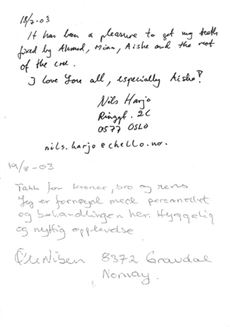 18/2-03
It has been a pleasure to get my teeth
fixed by Ahmed, Mina, Aishe and the rest
of the crew.
I love you all, especially Aishe!
Nils Harjo
2C
0577 OSLO
nils.harjo@chello.no.
19/2-03
Takk for kroner, bro og rens
Jeg er fornøyd med personalet
og behandlingen her. Hyggelig
og nyttig opplevelse
Nilsen 8372 Gravdal
Norway.